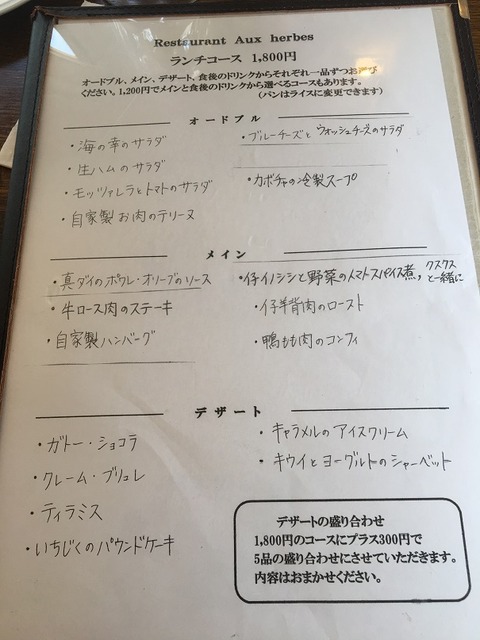 Restaurant Aux herbes
ランチコース 1,800円
オードブル、メイン、デザート、食後のドリンクからそれぞれ一品ずつお選び
ください。1,200円でメインと食後のドリンクから選べるコースもあります。
(パンはライスに変更できます)
オードブル
・海の幸のサラダ
・生ハムのサラダ
・モッツァレラとトマトのサラダ
・自家製お肉のテリーヌ
・ブルーチーズとウォッシュチーズのサラダ
・カボチャの冷製スープ
メイン
・真ダイのポワレ・オリーブのソース
・牛ロース肉のステーキ
・自家製ハンバーグ
・仔イノシシと野菜のトマトスパイス煮, クスクスと一緒に
・仔羊背肉のロースト
・鴨もも肉のコンフィ
デザート
・ガトー・ショコラ
・クレーム・ブリュレ
・ティラミス
・いちじくのパウンドケーキ
・キャラメルのアイスクリーム
・キウイとヨーグルトのシャーベット
デザートの盛り合わせ
1,800円のコースにプラス300円で
5品の盛り合わせにさせていただきます。
内容はおまかせください。